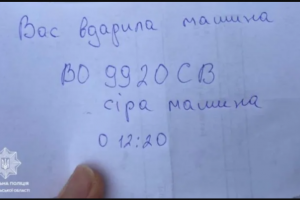 Вас вдарила машина
ВО 9920СВ
сіра машина
О 12:20